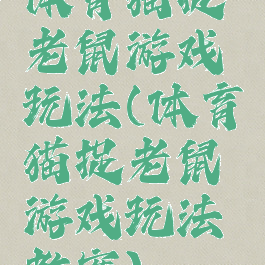 体育猫捉
老鼠游戏
玩法(体育
猫捉老鼠
游戏玩法
教案)